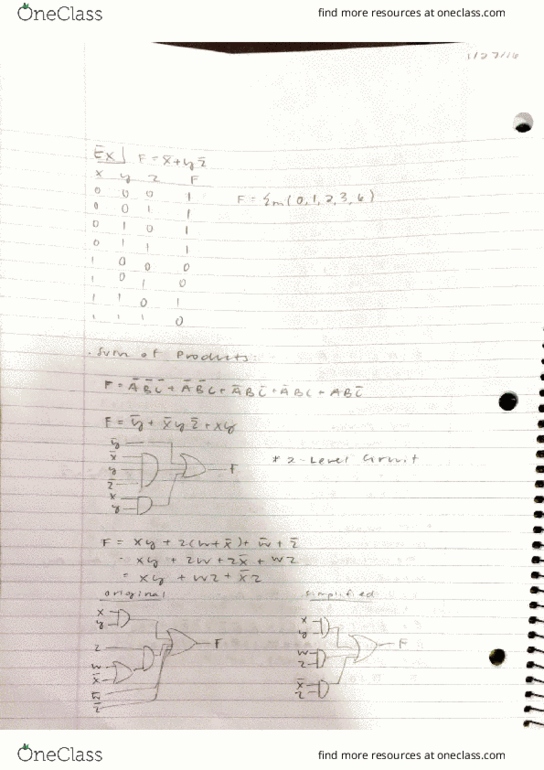 OneClass
find more resources at oneclass.com
1/27/16
Ex] F = x̄ + y z̄
x y z F
0 0 0 1
0 0 1 1
0 1 0 1
0 1 1 1
1 0 0 0
1 0 1 0
1 1 0 1
1 1 1 0
F = Σm(0,1,2,3,6)
. Sum of Products:
F = A̅B̅C̅ + A̅B̅C + A̅BC̅ + A̅BC + ABC̅
F = y̅ + x̅yz̅ + xy
y̅
x̅
y
z̅
x
y
F
* 2-Level Circuit
F = xy + z(w+x̅) + w̅ + z̅
= xy + zw + zx̅ + wz
= xy + wz + x̅z
original
simplified
x
y
z
w
x̅
w̅
z̅
F
x
y
w
z
x̅
z
F
OneClass
find more resources at oneclass.com